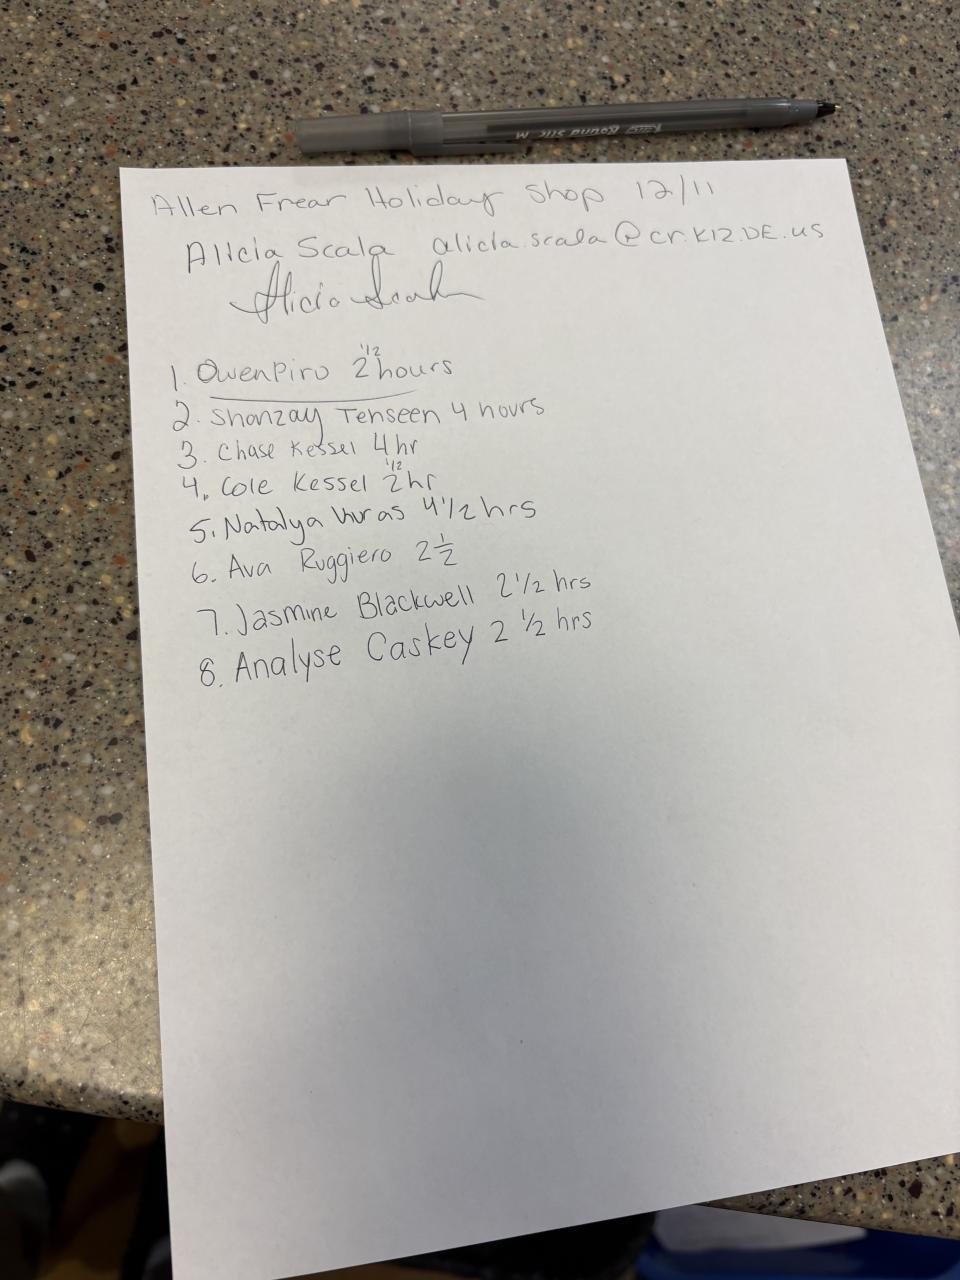 BIC Round Stic M
Allen Frear Holiday Shop 12/11
Alicia Scala alicia.scala@cr.k12.DE.us
Alicia Scala
1. Owen Piro 2 1/2 hours
2. Shanzay Tehseen 4 hours
3. Chase Kessel 4 hr
4. Cole Kessel 2 1/2 hr
5. Natalya 4 1/2 hrs
6. Ava Ruggiero 2 1/2
7. Jasmine Blackwell 2 1/2 hrs
8. Analyse Caskey 2 1/2 hrs